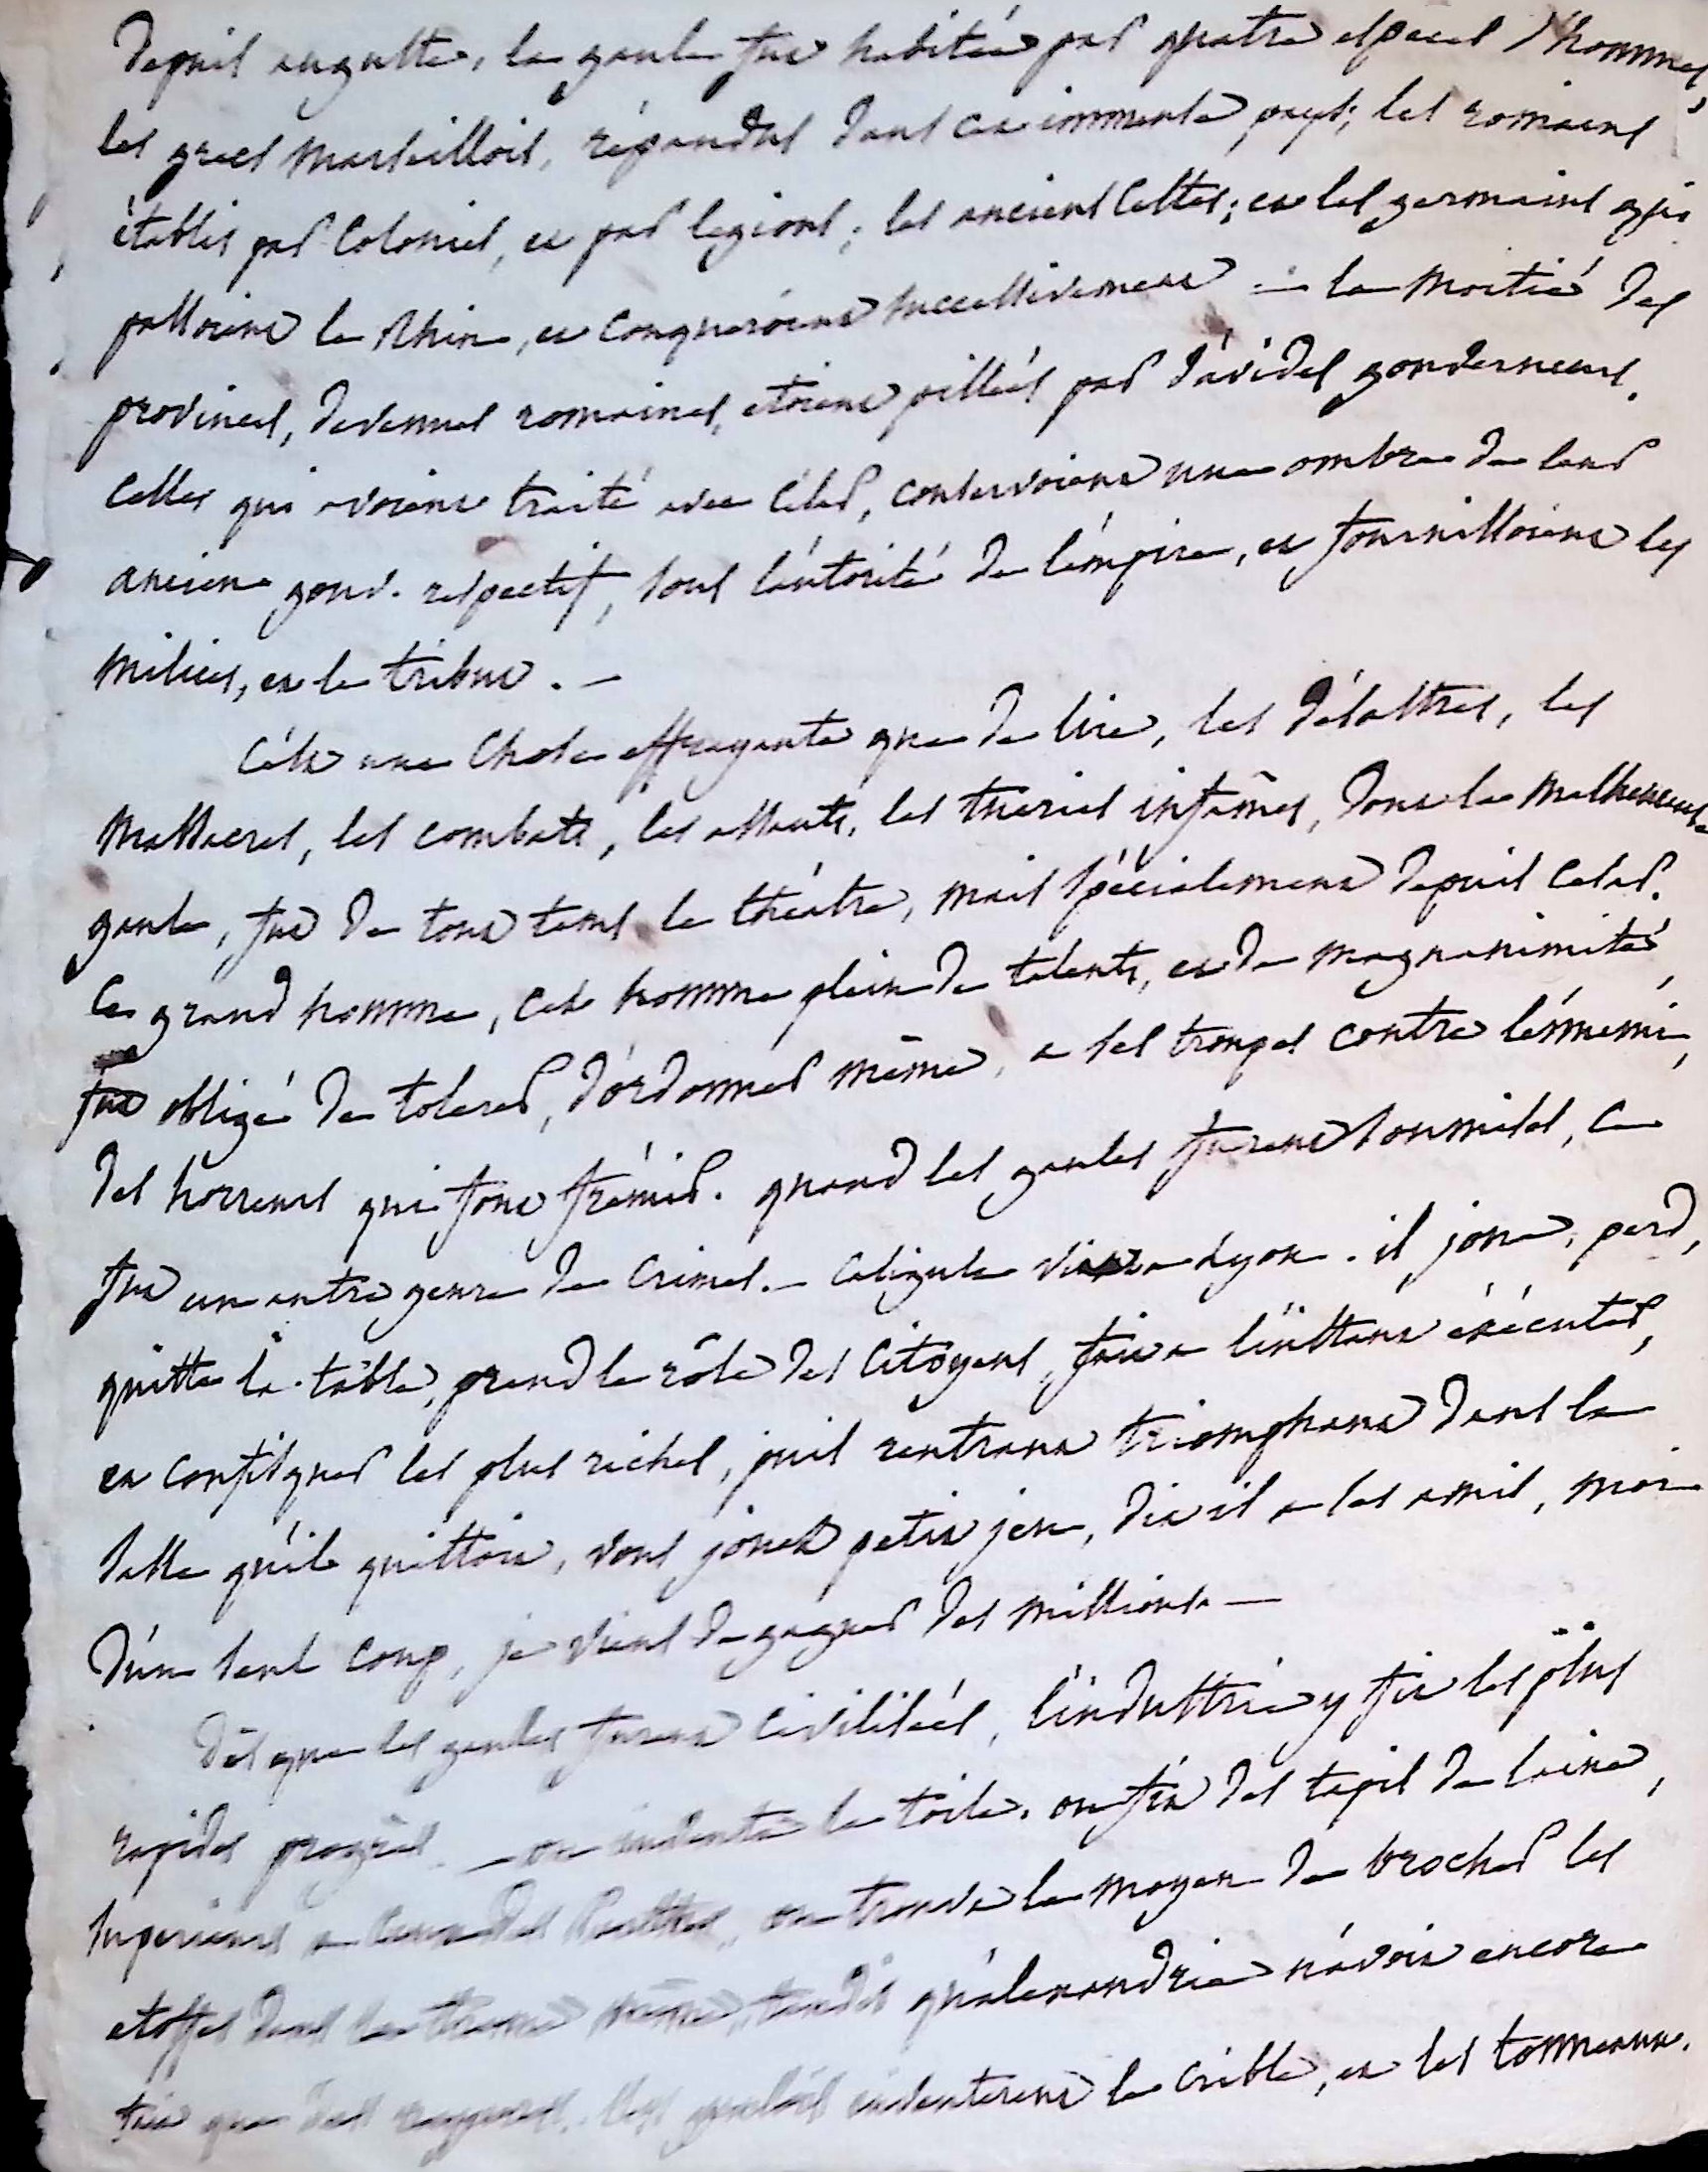 Depuis auguste, la gaule fut habitée par quatre especes d'hommes,
les grecs marseillois, répandus dans cet immense pays; les romains
établis par colonies, et par legions; les anciens celtes; et les germains qui
passoient le Rhin, et conqueroient successivement. — la moitié des
provinces, devenues romaines, etoient pillées par d'avides gouverneurs.
celles qui avoient traité avec César, conservoient une ombre de leur
ancien gouv. respectif, sous l'autorité de l'empire, et fournissoient les
milices, et le tribut. —
C'est une chose effrayante que de lire, les désastres, les
massacres, les combats, les assauts, les tueries infâmes, dont la malheureuse
gaule, fut de tout tems le théatre, mais spécialement depuis César.
Ce grand homme, cet homme plein de talents, et de magnanimité,
fut obligé de tolerer, d'ordonner même, a ses troupes contre l'ennemi,
des horreurs qui font frémir. quand les gaules furent soumises, ce
fut un autre genre de crimes. — caligula vient a Lyon. il joue, perd,
quitte la table, prend le rôle des citoyens, fait a l'instant exécuter,
et confisquer les plus riches, puis rentrant triomphant dans la
salle qu'il quittoit, vous jouez petit jeu, dit il a ses amis, moi
d'un seul coup, je viens de gagner des millions —
Dès que les gaules furent civilisées, l'industrie y fit les plus
rapides progrès. — on inventa la toile. on fit des tapis de laine,
superieurs a ceux des on trouva le moyen de brocher les
etoffes dans la trame même, tandis qu'alexandrie n'avoit encore
fait que des rayures. les gaulois inventerent le crible, et les tonneaux.